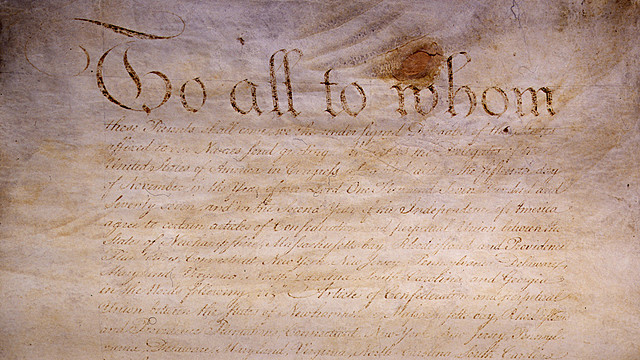 To all to whom
these Presents shall come, we the under signed Delegates of the States
affixed to our Names send greeting. Whereas the Delegates of the
United States of America in Congress assembled did on the fifteenth day
of November in the Year of our Lord One Thousand Seven Hundred and
Seventy seven, and in the Second Year of the Independence of America
agree to certain articles of Confederation and perpetual Union between the
States of Newhampshire, Massachusetts-bay, Rhodeisland and Providence
Plantations, Connecticut, New York, New Jersey, Pennsylvania, Delaware,
Maryland, Virginia, North-Carolina, South-Carolina and Georgia
in the Words following, viz. Articles of Confederation and perpetual
Union between the States of Newhampshire, Massachusetts-bay, Rhodeisland
and Providence Plantations, Connecticut, New York, New Jersey, Pennsyl-
vania, Delaware, Maryland, Virginia, North-Carolina, South-Carolina